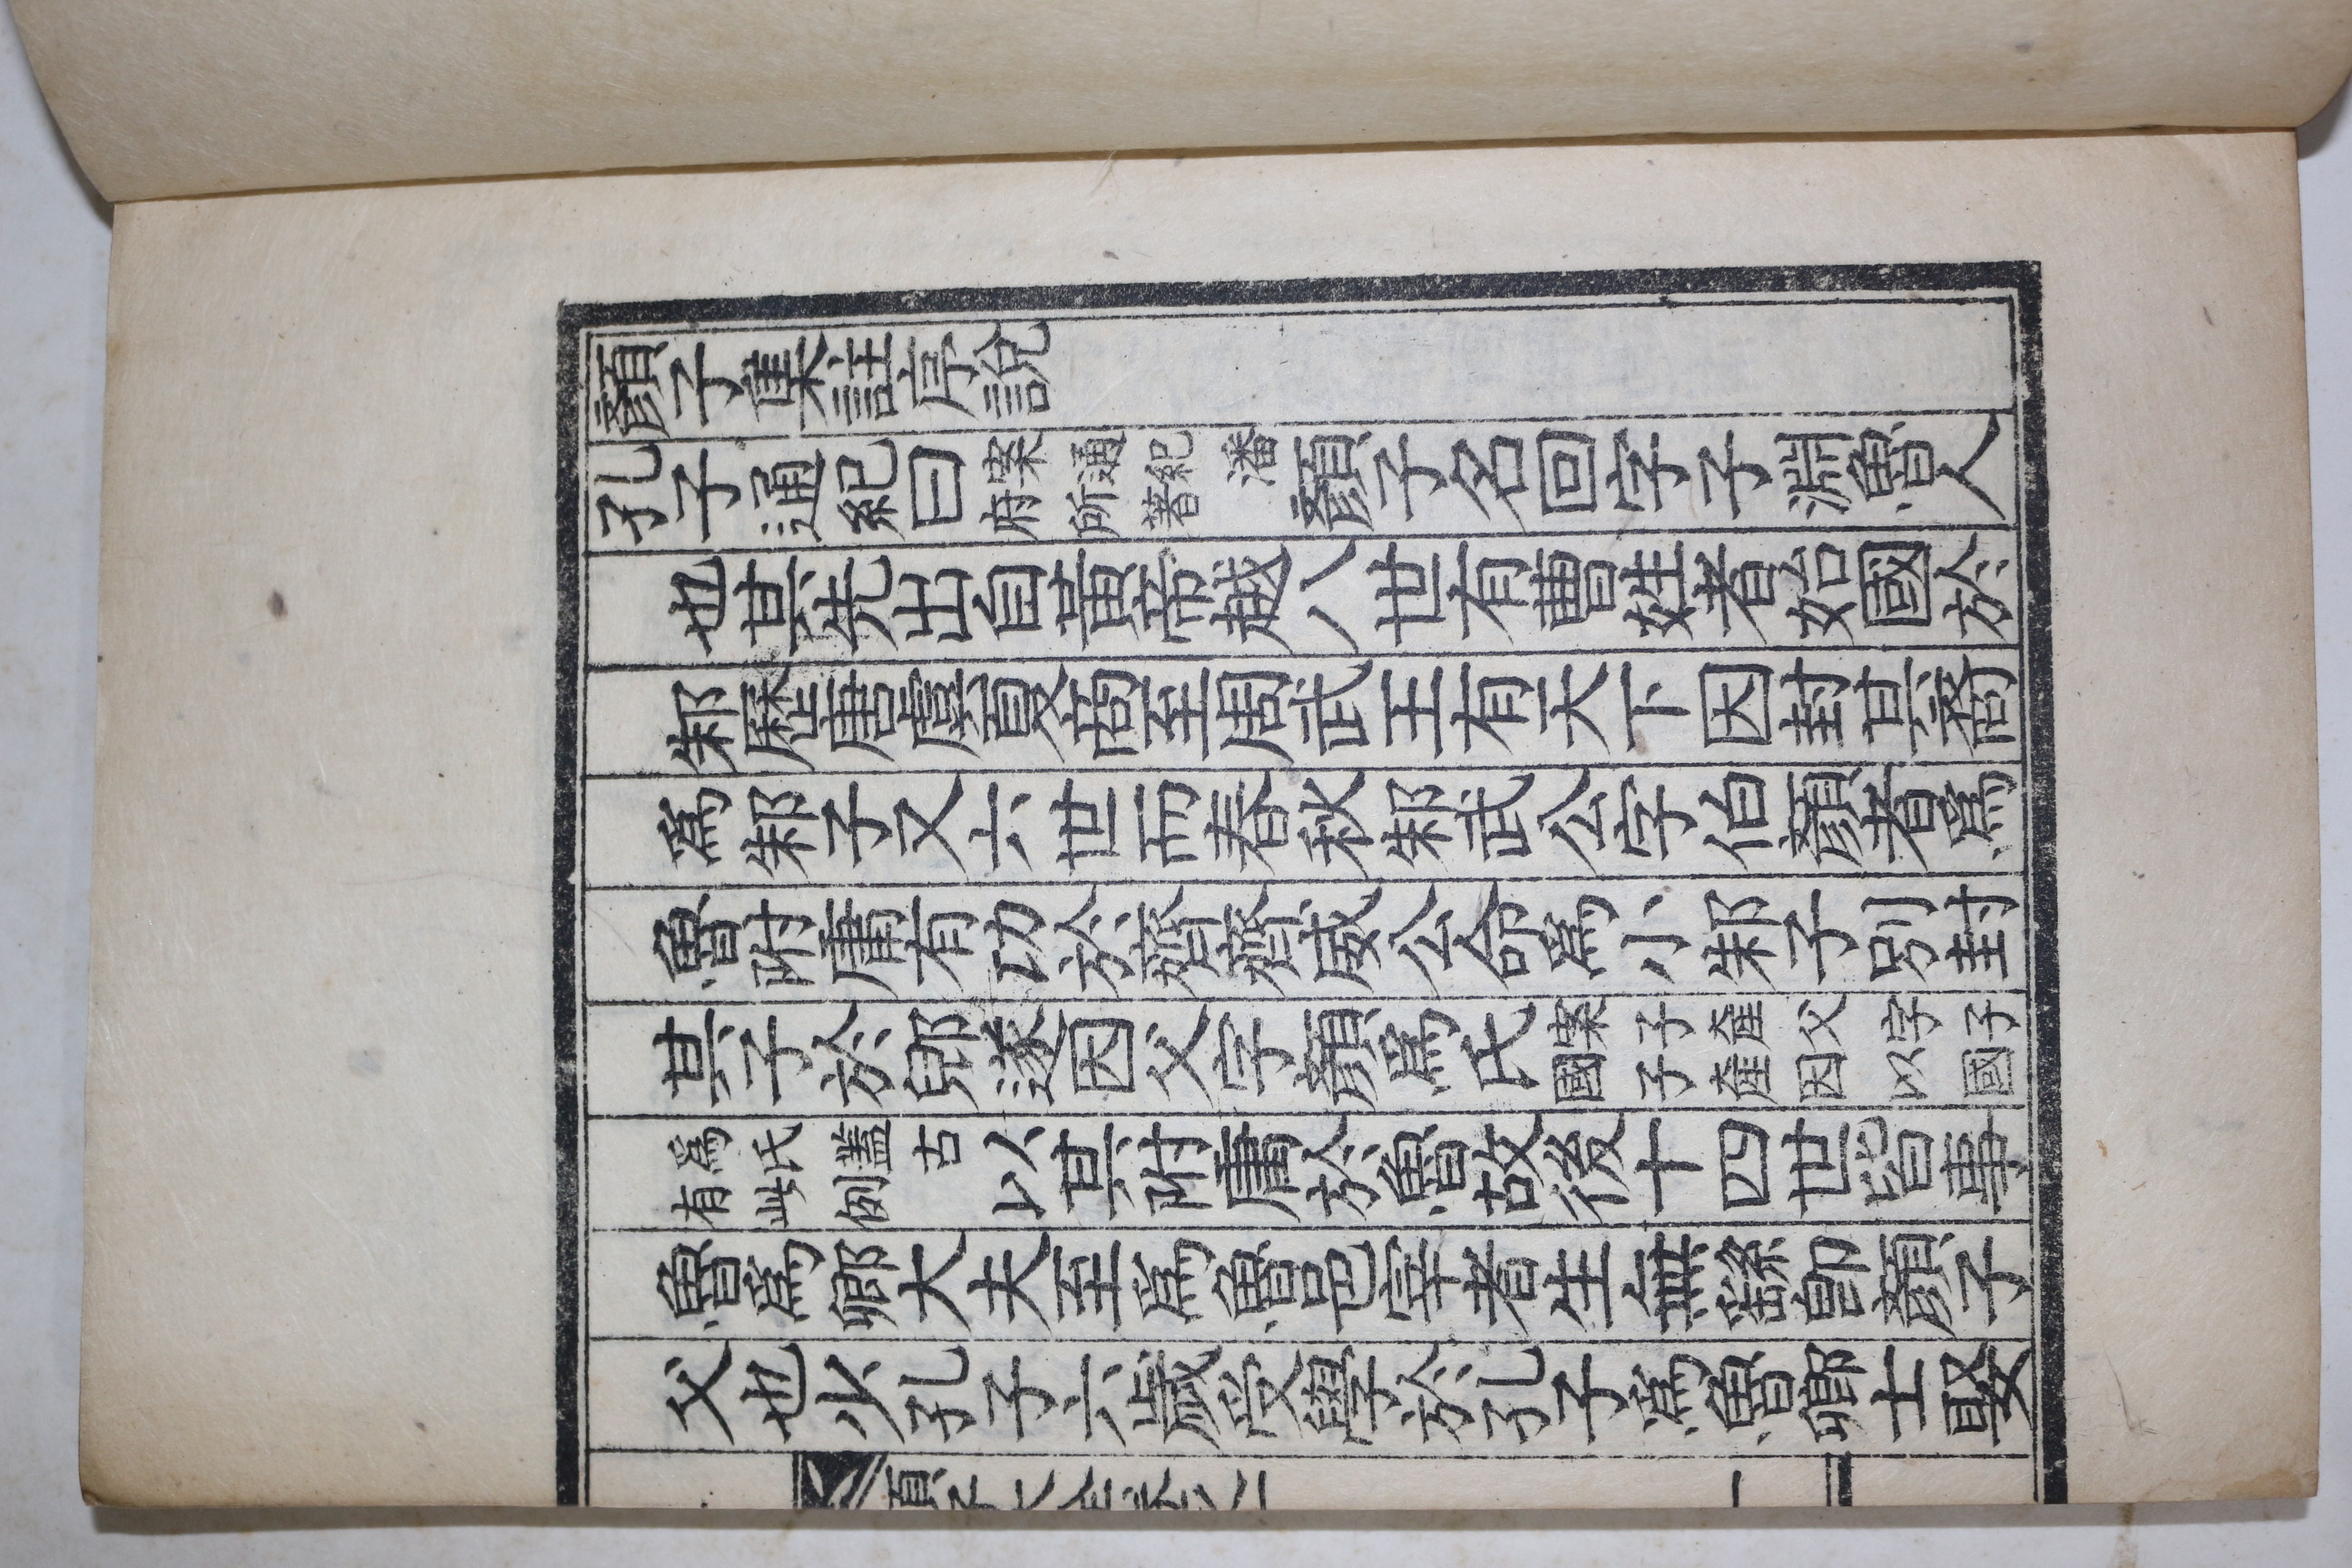 顏子集註序說
孔子通紀曰案通紀潘府所著顏子名回字子淵魯人
也其先出自黃帝越八世有曹姓者始國於
邾歷唐虞夏商至周武王有天下因封其裔
爲邾子又六世而春秋邾武公字伯顏者爲
魯附庸有功於齊齊威公命爲小邾子別封
其子於郳遂因父字顏爲氏案子產父字子國子產因以國
爲氏蓋古有此例以其附庸於魯故後十四世皆事
魯爲卿大夫至爲魯邑宰者生無繇卽顏子
父也少孔子六歲受學於孔子爲魯卿士娶
一